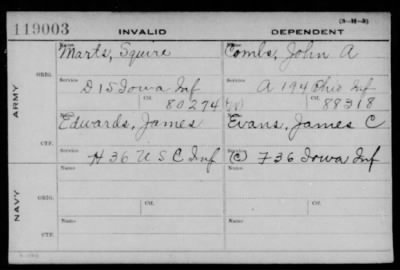 (3-M-3)
119003 INVALID DEPENDENT
Name Name
Marts, Squire Combs, John A
ORIG.
Service Service
D 15 Iowa Inf A 194 Ohio Inf
Ctf. Ctf.
80274 (W) 88318
ARMY
Name Name
Edwards, James Evans, James C
CTF.
Service Service
H 36 U S C Inf (C) F 36 Iowa Inf
Name Name
ORIG.
Ctf. Ctf.
NAVY
Name Name
CTF.